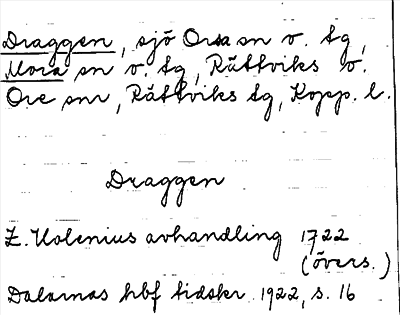 Draggen, sjö Orsa sn o. tg,
Mora sn o. tg, Rättviks o.
Ore snr, Rättviks tg, Kopp. l.
Draggen
Z. Holenius avhandling 1722
(övers.)
Dalarnas hbf tidskr 1922, s. 16